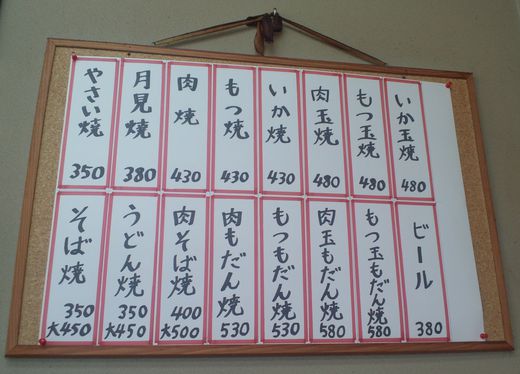 やさい焼 350
月見焼 380
肉焼 430
もつ焼 430
いか焼 430
肉玉焼 480
もつ玉焼 480
いか玉焼 480
そば焼 350
大450
うどん焼 350
大450
肉そば焼 400
大500
肉もだん焼 530
もつもだん焼 530
肉玉もだん焼 580
もつ玉もだん焼 580
ビール 380